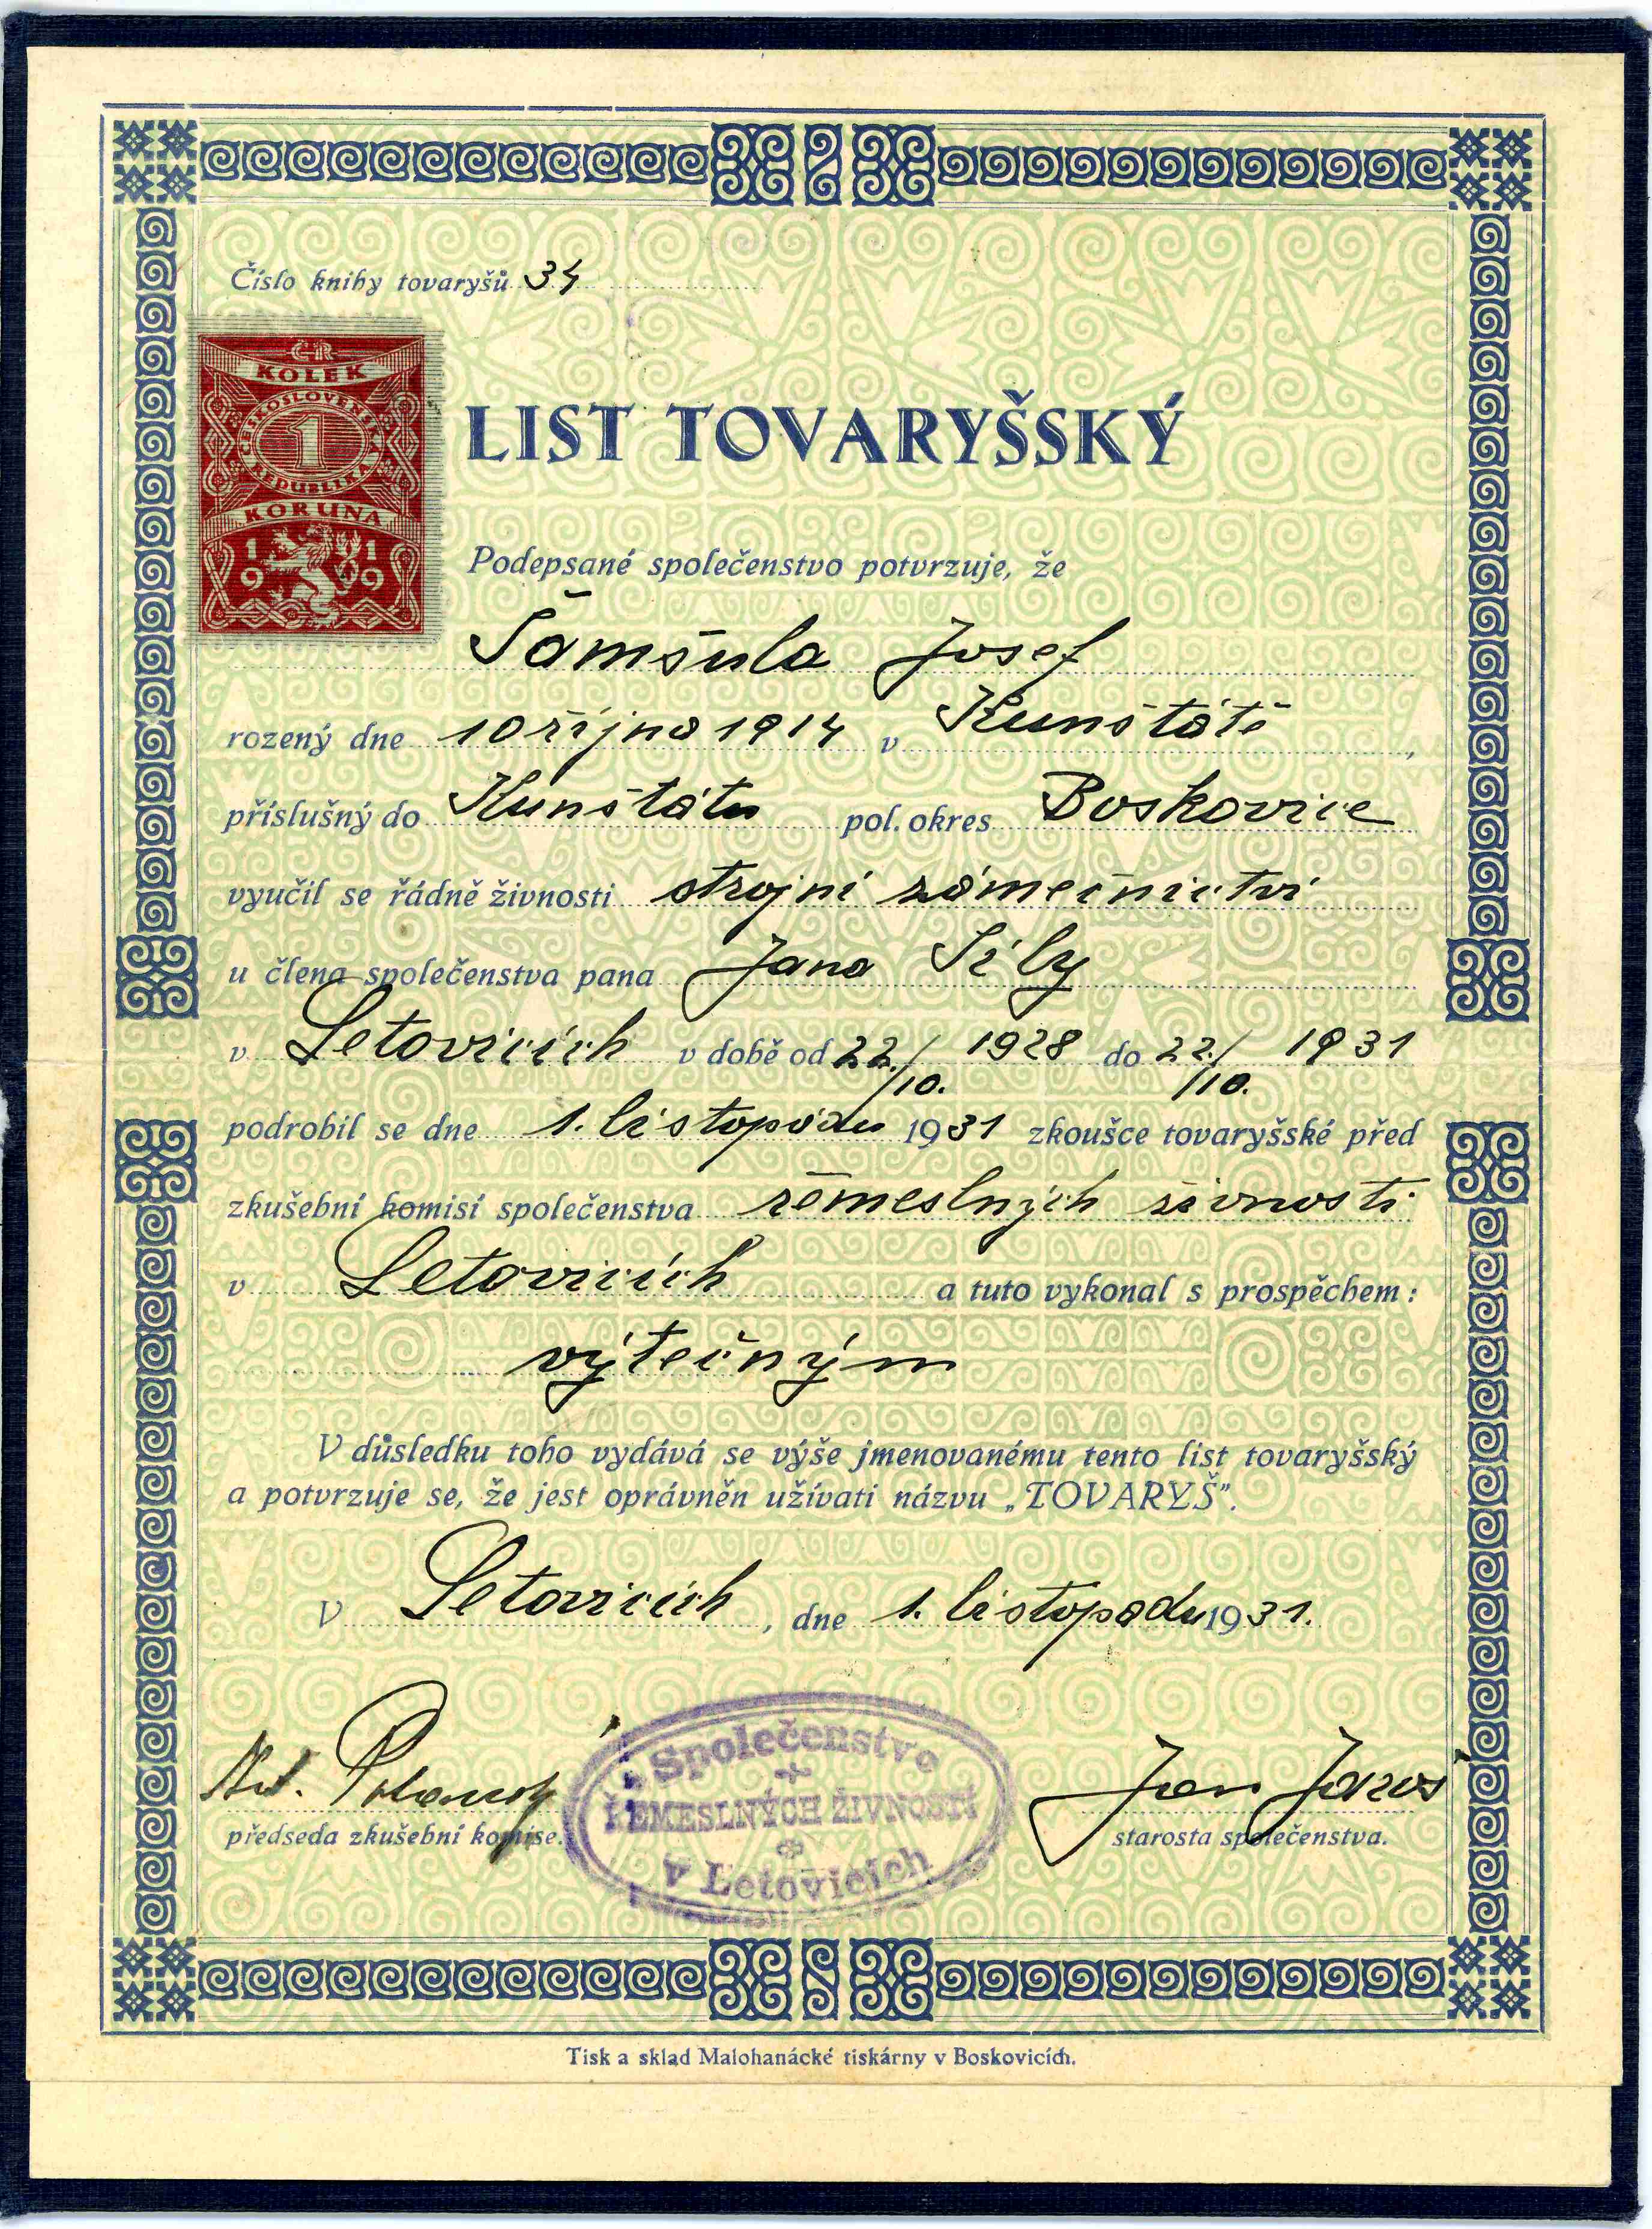 Číslo knihy tovaryšů 34
ČR
KOLEK
ČESKOSLOVENSKÁ
1
REPUBLIKA
KORUNA
1919
LIST TOVARYŠSKÝ
Podepsané společenstvo potvrzuje, že
Šamšula Josef
rozený dne 10 října 1914 v Kunštátě,
příslušný do Kunštátu pol. okres Boskovice
vyučil se řádně živnosti strojní zámečnictví
u člena společenstva pana Jana Síly
v Letovicích v době od 22./10. 1928 do 22./10. 1931
podrobil se dne 1. listopadu 1931 zkoušce tovaryšské před
zkušební komisí společenstva řemeslných živností
v Letovicích a tuto vykonal s prospěchem:
výtečným
V důsledku toho vydává se výše jmenovanému tento list tovaryšský
a potvrzuje se, že jest oprávněn užívati názvu „TOVARYŠ".
V Letovicích, dne 1. listopadu 1931.
Společenstvo
ŘEMESLNÝCH ŽIVNOSTÍ
v Letovicích
Jan Jaroš
předseda zkušební komise.
starosta společenstva.
Tisk a sklad Malohanácké tiskárny v Boskovicích.